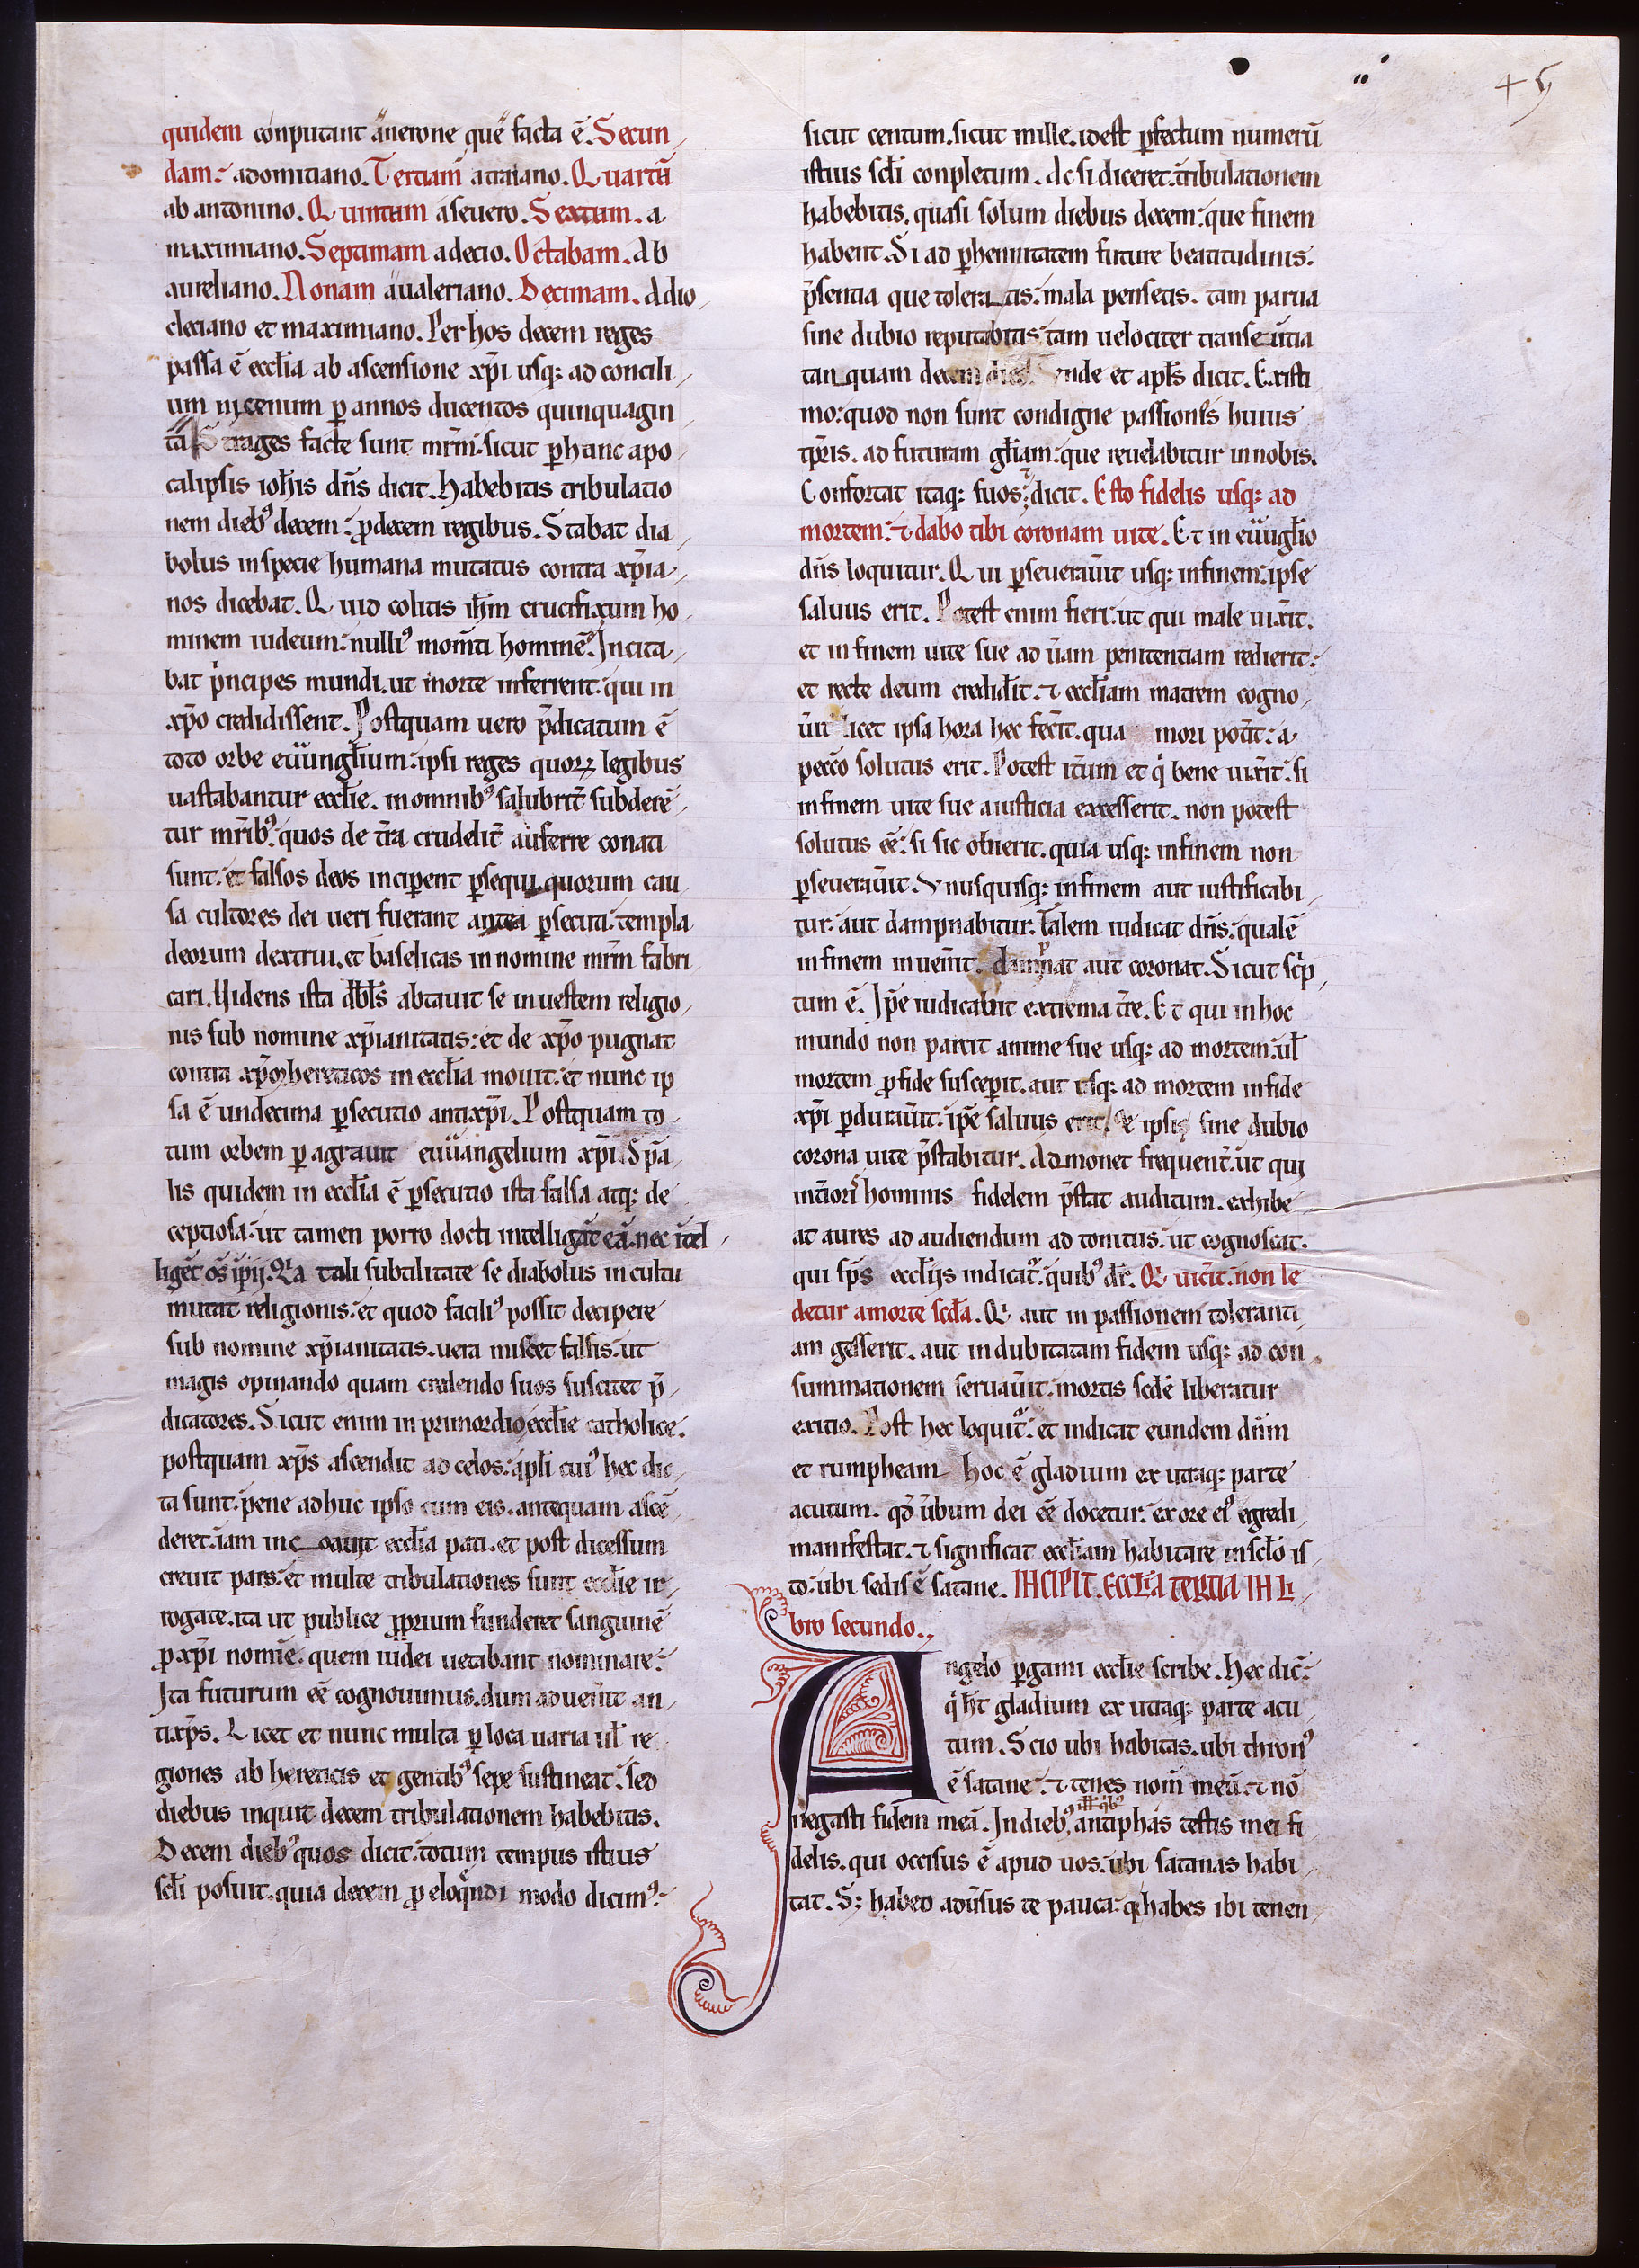 45
quidem conputant anerone que facta ē. Secun
dam: adomitiano. Tertiam atraiano. Quartā
ab antonino. Quintam aseuero. Sextam. a
maximiano. Septimam adecio. Octabam. Ab
aureliano. Nonam aualeriano. Decimam. Adio
cleciano et maximiano. Per hos decem reges
passa ē eccłia ab ascensione xp̄i usq; ad concili
um nicenum ꝑ annos ducentos quinquagin
ta Strages facte sunt mr̄m. sicut ꝑ hanc apo
calipsis ioħis dn̄s dicit. Habebitis tribulatio
nem diebꝰ decem: ꝓdecem regibus. Stabat dia
bolus in specie humana mutatus contra xp̄ia
nos dicebat. Quid colitis iħm crucifixum ho
minem iudeum: nulliꝰ mom̄ti hominē. Incita
bat p̍ncipes mundi. ut morte inferrent. qui in
xp̄o credidissent. Postquam uero p̄dicatum ē
toto orbe euungłium: ipsi reges quoꝝ legibus
uastabantur eccłie. in omnibꝰ salubrit̄ subderē
tur mr̄ibꝰ. quos de t̄ra crudelit̄ auferre conati
sunt. et falsos deos inciꝑent ꝑsequi. quorum cau
sa cultores dei ueri fuerant antea ꝑsecuti. templa
deorum dextrui. et baselicas in nomine mr̄m fabri
cari. Uidens ista dƀłs abtauit se in uestem religio
nis sub nomine xp̄ianitatis: et de xp̄o pugnat
contra xp̄m hereticos in eccłia mouit. et nunc ip
sa ē undecima ꝑsecutio antixp̄i. Postquam to
tum orbem ꝑ agrauit euuangelium xp̄i. Sp̄a
lis quidem in eccłia ē ꝑsecutio ista falsa atq; de
ceptiosa. ut tamen porro docti intelligāt eā. nec ītel
ligēt os̄ īpij. Qa tali subtilitate se diabolus in cultu
mutat religionis. et quod faciliꝰ possit decipere
sub nomine xp̄ianitatis. uera miscet falsis. ut
magis opinando quam credendo suos suscitet p̄
dicatores. Sicut enim in primordio eccłie catholice.
postquam xp̄s ascendit ad celos: apłi cuiꝰ hec dic
ta sunt. pene adhuc ipso cum eis. antequam ascē
deret. iam inc oauit eccłia pati. et post dicessum
creuit pars. et multe tribulationes sunt eccłie ir
rogate. ita ut publice ꝓprium funderet sanguinē
ꝓ xp̄i nomīe. quem iudei uetabant nominare:
Ita futurum eē cognouimus. dum aduen̄it an
tixp̄s. Licet et nunc multa ꝑ loca uaria uł re
giones ab hereticis et gentibꝰ sepe sustineat. sed
diebus inquit decem tribulationem habebitis.
Decem diebꝰ quos dicit. totum tempus istius
scłi posuit. quia decem ꝓ eloq̍ndi modo dicimꝰ:
sicut centum. sicut mille. idest ꝑfectum numerū
istius scłi conpletum. Ac si diceret. tribulationem
habebitis. quasi solum diebus decem: que finem
habent. Si ad ꝑhennitatem future beatitudinis.
p̄sentia que tolera tis: mala pensetis. tam parua
sine dubio reputabitis tam uelociter transeūtia
tan quam decem dies. nde et apłs dicit. Existi
mo: quod non sunt condigne passiones huius
tp̄ris. ad futuram głiam: que reuelabitur in nobis.
Confortat itaq; suos ⁊ dicit. Esto fidelis usq; ad
mortem: ⁊ dabo tibi coronam uite. Et in euuigłio
dn̄s loquitur. Qui ꝑseuerau̅it usq; infinem: ipse
saluus erit. Potest enim fieri: ut qui male uix̄it.
et in finem uite sue ad ūam penitentiam redierit:
et recte deum credid̄it. ⁊ eccłiam matrem cogno
ūit licet ipsa hora hec fec̄it. qua mori pot̄it: a
pecc̄o solutus erit. Potest it̄um et q̍ bene uix̄it: si
infinem uite sue aiusticia excesserit. non potest
solutus eē: si sic obierit. quia usq; infinem non
ꝑseuerau̅it. Unusquisq; infinem aut iustificabi
tur: aut dampnabitur. talem iudicat dn̄s: qualē
in finem inuen̄it. dampnat aut coronat. Sicut sc̍p
tum ē. Ip̄e iudicabit extrema t̄re. Et qui in hoc
mundo non parcit anime sue usq; ad mortem: uł
mortem ꝓfide susceꝑit. aut usq; ad mortem infide
xp̄i ꝑdurau̅it: ip̄e saluus erit. De ipsis sine dubio
corona uite p̄stabitur. Admonet frequent̄. ut qui
int̄iorꝭ hominis fidelem p̄stat auditum. exhibe
at aures ad audiendum ad tonitus. ut cognoscat.
qui sp̄s eccłijs indicat᷑. quibꝰ dr̄. Q uic̄it. non le
detur amorte sc̄da. Q aut in passionem toleranti
am gesserit. aut indubitatam fidem usq; ad con
summationem seruau̅it. mortis sc̄dē liberatur
exitio. Post hec loquit᷑. et indicat eundem dn̄m
et rumpheam hoc ē gladium ex utraq; parte
acutum. qd̄ ūbum dei eē docetur: ex ore eiꝰ egredi
manifestat. ⁊ significat eccłiam habitare in scło is
to. ubi sedis ē satane. INCIPIT. ECCŁIA TERTIA IN LI
bro secundo.
Angelo ꝑgami eccłie scribe. Hec dic̄:
q̍ ħt gladium ex utraq; parte acu
tum. Scio ubi habitas. ubi thronꝰ
ē satane. ⁊ tenes nom̄ meū. ⁊ nō
negasti fidem meā. In diebꝰ, antiphas testis mei fi
delis. qui occisus ē apud uos. ubi satanas habi
tat. S; habeo adu̅sus te pauca. q habes ibi tenen